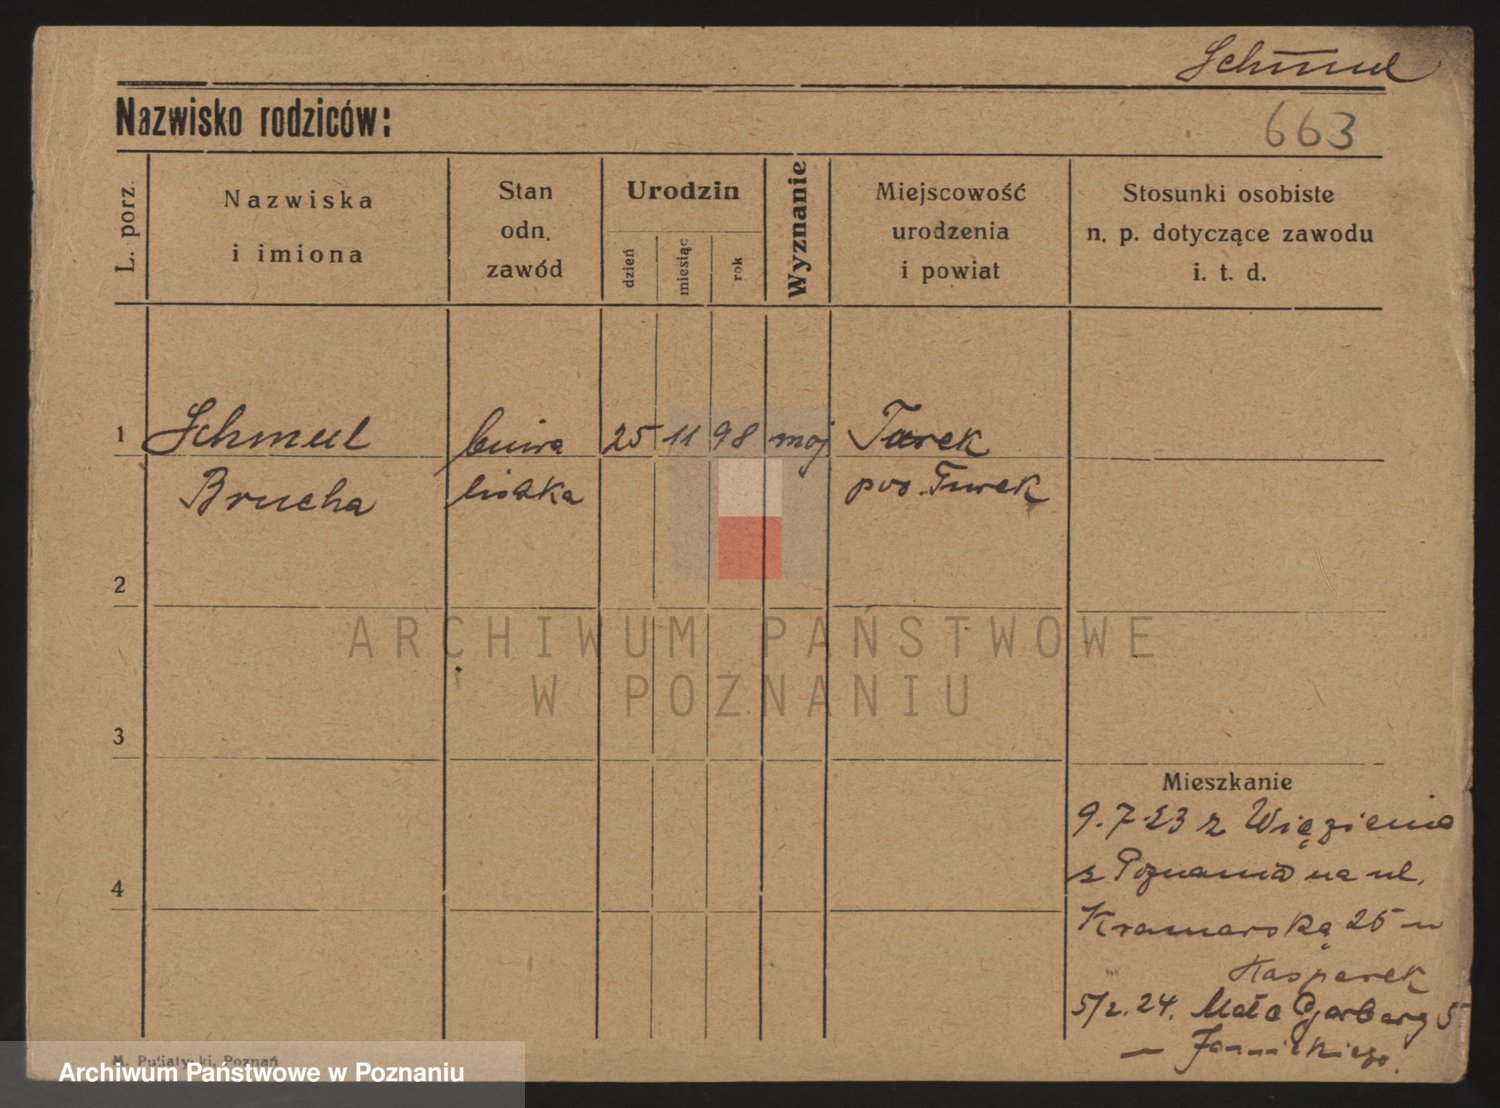 Schmul
Nazwisko rodziców:
663
L. porz.
Nazwiska
i imiona
Stan
odn.
zawód
Urodzin
dzień
miesiąc
rok
Wyznanie
Miejscowość
urodzenia
i powiat
Stosunki osobiste
n. p. dotyczące zawodu
i. t. d.
1
Schmul
25 11 98 moj
Turek
Brucha
pow. Turek
2
ARCHIWUM PAŃSTWOWE
W POZNANIU
3
Mieszkanie
9.7.23 z Więzienia
z Poznania na ul.
4
Kramarską 25 u
Kasperek
5/2.24. Mała Garbary 5
M. Putiatycki, Poznań
Archiwum Państwowe w Poznaniu